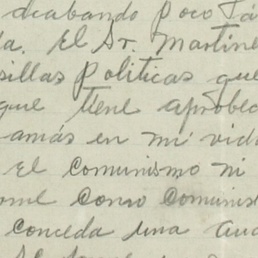 acabando poco
da. El Sr. Martine
sillas Politicas que
que tiene aprobec
amás en mi vida
El comunismo ni
ome como comunis
conceda una aud